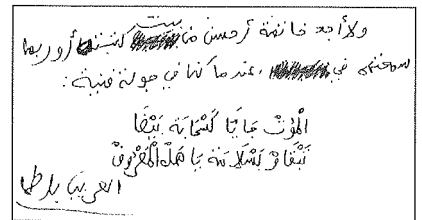 ولا أجد خاتمة أحسن من بيت كتبته أو ربما
سمعته في ، عندما كنا في جولة فنية :
الْمُوتْ جَايَّا كَسْحَابَة بَيْضَا
تَبْقَاوْ بَسْلَامَة يَا هَلْ الْمَعْرُوفْ
العربي باطما